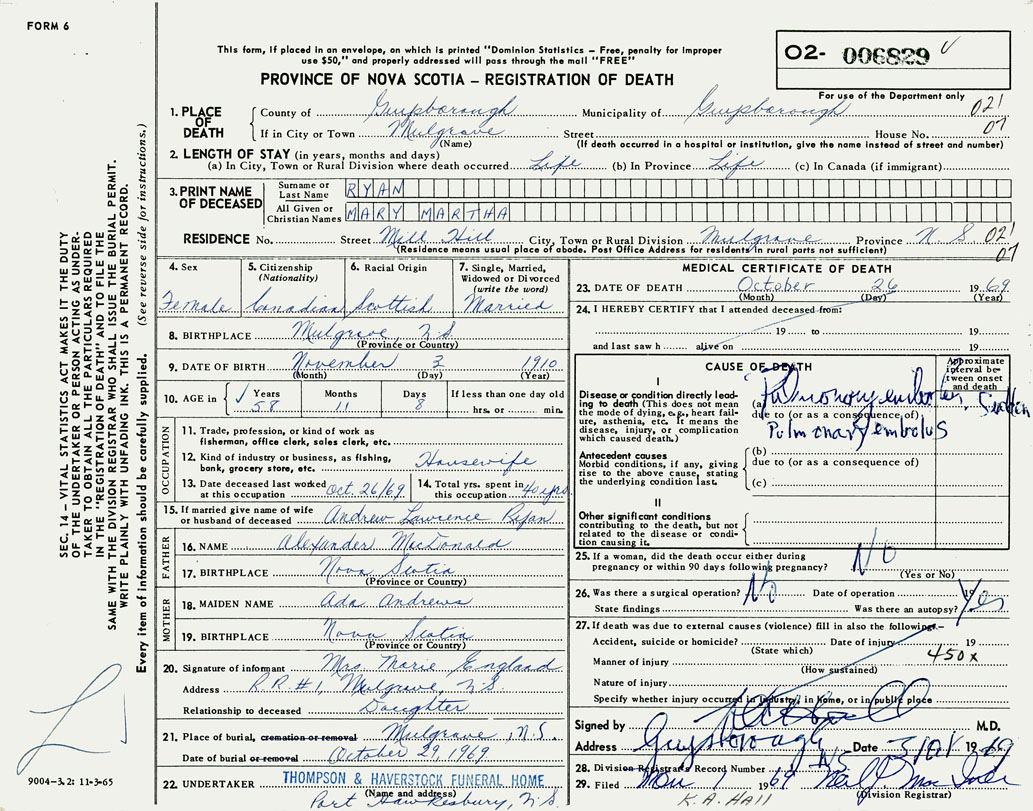 FORM 6
This form, if placed in an envelope, on which is printed "Dominion Statistics – Free, penalty for improper
use $50," and properly addressed will pass through the mail "FREE"
PROVINCE OF NOVA SCOTIA – REGISTRATION OF DEATH
O2- 006829
For use of the Department only
1. PLACE OF DEATH County of Guysborough Municipality of Guysborough 021
If in City or Town Mulgrave Street House No. 07
(Name) (If death occurred in a hospital or institution, give the name instead of street and number)
2. LENGTH OF STAY (in years, months and days)
(a) In City, Town or Rural Division where death occurred Life (b) In Province Life (c) In Canada (if immigrant)
3. PRINT NAME OF DECEASED Surname or Last Name RYAN
All Given or Christian Names MARY MARTHA
RESIDENCE No. Street Mill Hill City, Town or Rural Division Mulgrave Province N S 021
(Residence means usual place of abode. Post Office Address for residents in rural parts not sufficient) 07
4. Sex Female
5. Citizenship (Nationality) Canadian
6. Racial Origin Scottish
7. Single, Married, Widowed or Divorced (write the word) Married
8. BIRTHPLACE Mulgrave, N.S.
(Province or Country)
9. DATE OF BIRTH November 3 1910
(Month) (Day) (Year)
10. AGE in Years Months Days If less than one day old
58 11 8 hrs. or min.
OCCUPATION
11. Trade, profession, or kind of work as
fisherman, office clerk, sales clerk, etc.
12. Kind of industry or business, as fishing,
bank, grocery store, etc. Housewife
13. Date deceased last worked at this occupation Oct. 26/69
14. Total yrs. spent in this occupation 40 yrs.
15. If married give name of wife
or husband of deceased Andrew Lawrence Ryan
FATHER
16. NAME Alexander MacDonald
17. BIRTHPLACE Nova Scotia
(Province or Country)
MOTHER
18. MAIDEN NAME Ada Andrews
19. BIRTHPLACE Nova Scotia
(Province or Country)
20. Signature of informant Mrs. Marie England
Address R.R.#1, Mulgrave, N.S.
Relationship to deceased Daughter
21. Place of burial, cremation or removal Mulgrave, N.S.
Date of burial or removal October 29, 1969
22. UNDERTAKER THOMPSON & HAVERSTOCK FUNERAL HOME
(Name and address)
Port Hawkesbury, N.S.
MEDICAL CERTIFICATE OF DEATH
23. DATE OF DEATH October 26 1969
(Month) (Day) (Year)
24. I HEREBY CERTIFY that I attended deceased from:
19 to 19
and last saw h alive on 19
CAUSE OF DEATH
Approximate interval between onset and death
I
Disease or condition directly leading to death (This does not mean the mode of dying, e.g., heart failure, asthenia, etc. It means the disease, injury, or complication which caused death.)
(a) Pulmonary embolus, Sudden
due to (or as a consequence of)
Pulmonary embolus
Antecedent causes
Morbid conditions, if any, giving rise to the above cause, stating the underlying condition last.
(b)
due to (or as a consequence of)
(c)
II
Other significant conditions
contributing to the death, but not related to the disease or condition causing it.
25. If a woman, did the death occur either during
pregnancy or within 90 days following pregnancy? No
(Yes or No)
26. Was there a surgical operation? No Date of operation 19
State findings Was there an autopsy? Yes
27. If death was due to external causes (violence) fill in also the following:–
Accident, suicide or homicide? Date of injury 19
(State which)
Manner of injury 450X
(How sustained)
Nature of injury
Specify whether injury occurred in industry, in home, or in public place
Signed by M.D.
Address Guysborough N.S. Date 19 69
28. Division Registrar's Record Number
29. Filed Nov 1 1969
(Division Registrar)
K.A. Hall
SEC. 14 – VITAL STATISTICS ACT MAKES IT THE DUTY
OF THE UNDERTAKER OR PERSON ACTING AS UNDER-
TAKER TO OBTAIN ALL THE PARTICULARS REQUIRED
IN THE "REGISTRATION OF DEATH" AND TO FILE THE
SAME WITH THE DIVISION REGISTRAR WHO SHALL ISSUE THE BURIAL PERMIT.
WRITE PLAINLY WITH UNFADING INK. THIS IS A PERMANENT RECORD.
Every item of information should be carefully supplied. (See reverse side for instructions.)
9004-3.2: 11-3-65